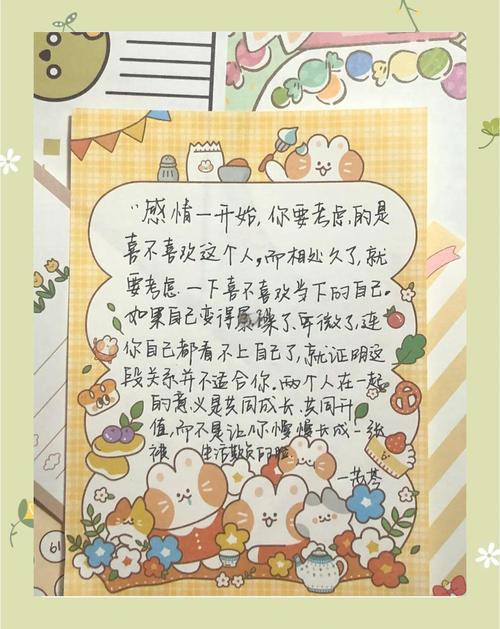 “感情一开始,你要考虑的是
喜不喜欢这个人,而相处久了,就
要考虑一下喜不喜欢当下的自己。
如果自己变得暴躁了、卑微了,连
你自己都看不上自己了,就证明这
段关系并不适合你。两个人在一起
的意义是共同成长、共同升
值,而不是让你慢慢长成一张
被 生活欺负的脸
61